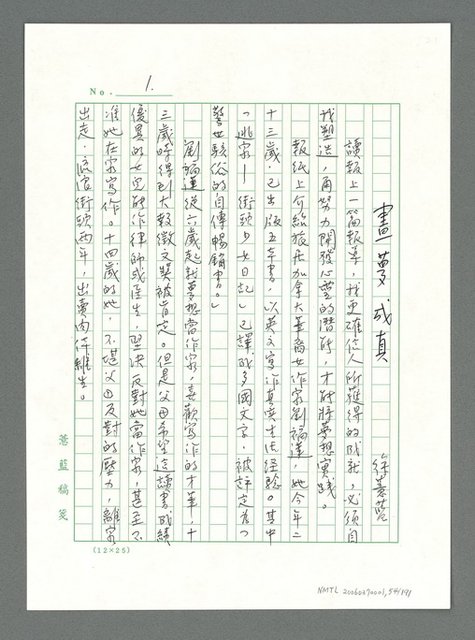 No. 1.
畫夢成真
徐薏藍
讀報上一篇報導，我更確信人所獲得的成就，必須自
我塑造，再努力開發心靈的潛能，才能將夢想實踐。
報紙上介紹旅居加拿大華裔女作家劉綺蓮，她今年二
十三歲，已出版五本書，以英文寫作真實生活經驗。其中
「逃家－街頭少女日記」已譯成多國文字，被評定為「
驚世駭俗的自傳暢銷書。」
劉綺蓮從六歲起就夢想當作家，喜歡寫作的才華，十
三歲時得到大報徵文獎被肯定。但是父母希望這讀書成績
優異的女兒能作律師或醫生，堅決反對她當作家，甚至不
准她在家寫作。十四歲的她，不堪父母反對的壓力，離家
出走，流浪街頭兩年，出賣肉體維生。
薏藍稿箋
(12×25)
NMTL